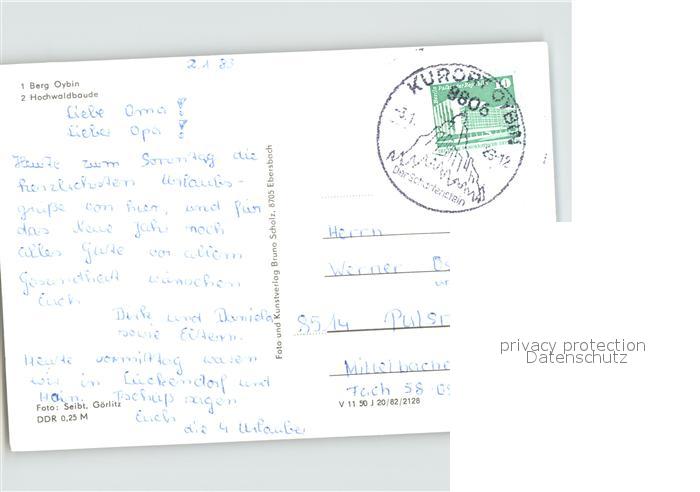 2.1.83
1 Berg Oybin
2 Hochwaldbaude
Liebe Oma!
Lieber Opa!
Heute zum Sonntag die
herzlichsten Urlaubs-
grüße von hier, und für
das Neue Jahr noch
alles Gute vor allem
Gesundheit wünschen
Euch
Dirk und Daniela
sowie Eltern.
Heute vormittag waren
wir in Lückendorf und
Hain. Tschüß sagen
Euch
die 4 Urlauber
Foto: Seibt, Görlitz
DDR 0,25 M
Foto und Kunstverlag Bruno Scholz, 8705 Ebersbach
KURORT OYBIN
8806
-3.1.
-12
Der Scharfenstein
Herrn
Werner
8514 Pulsn
Mittelbacher
Fach 58
V 11 50 J 20/82/2128
privacy protection
Datenschutz